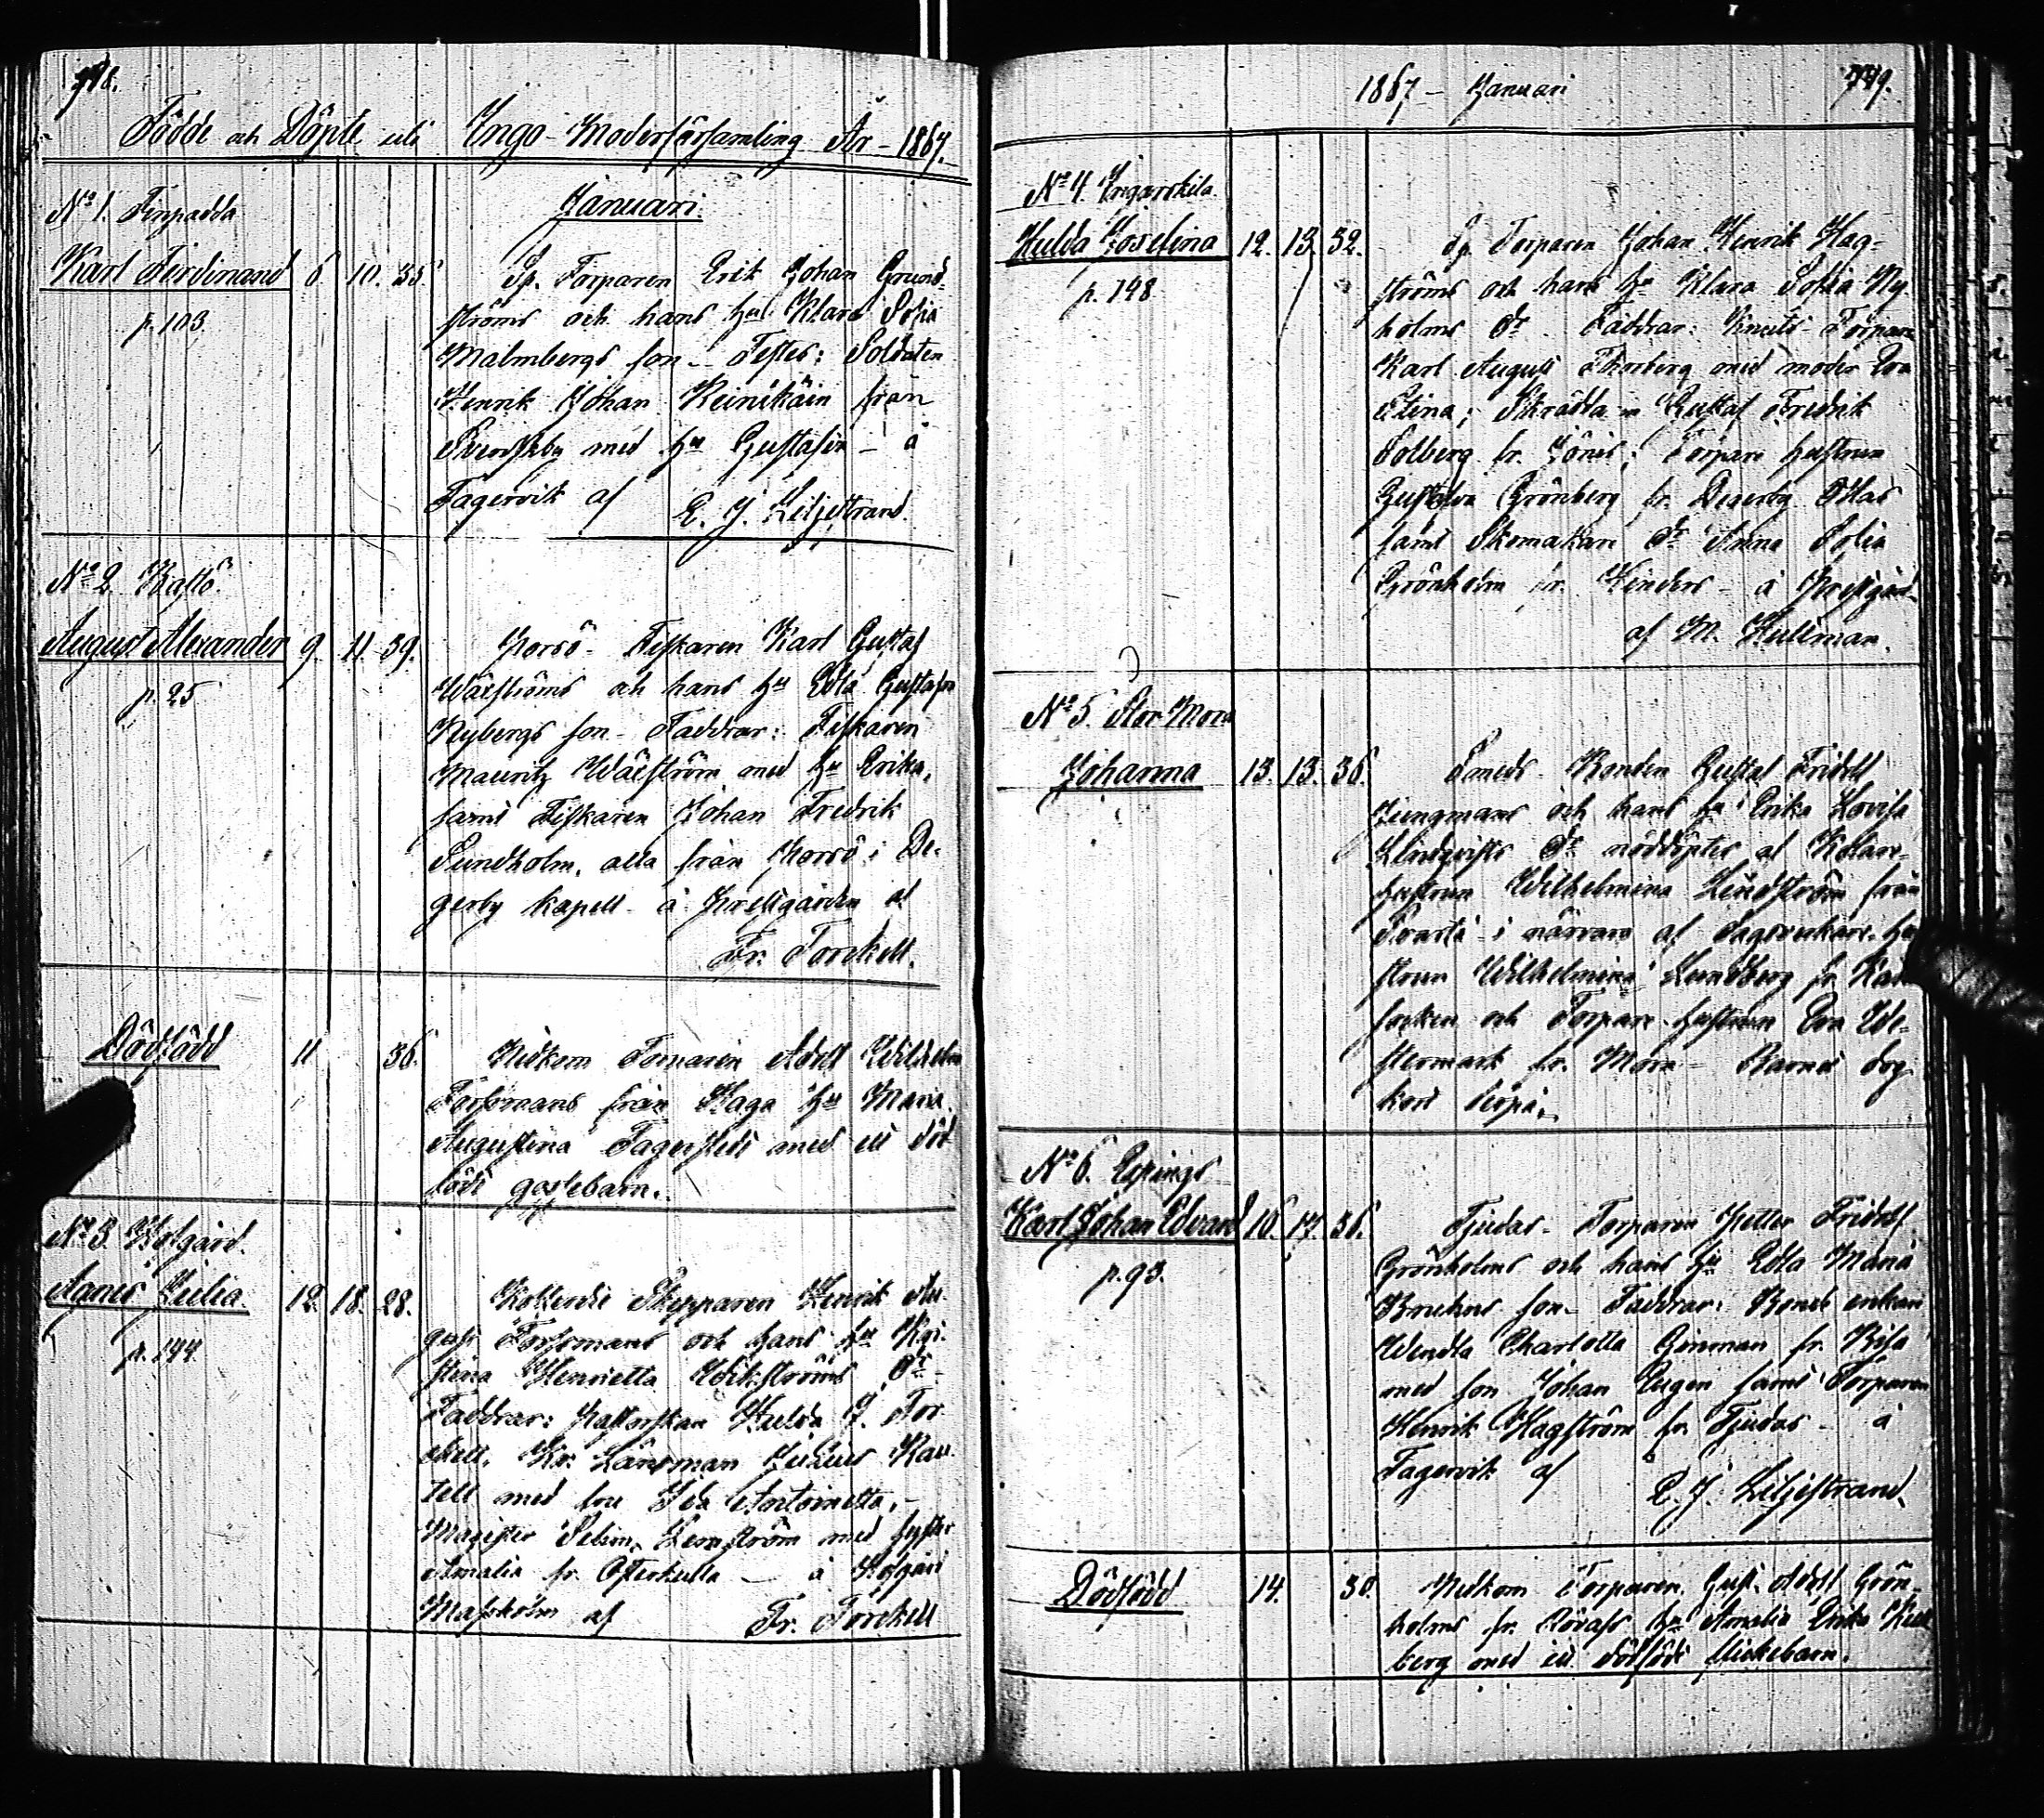 Födde och Döpte uti Ingo Moderförsamling År - 1867.
Januari.
No 1. Finpadda
Karl Ferdinand 6. 10. 35.
p. 103.
Sp. Torparen Erik Johan Grund-
ströms och hans hu Klara Sofia
Malmbergs son - Testes: Soldaten
Henrik Johan Reinikäin från
med hu Gustafva - å
Fagervik af E. J. Liljestrand.
No 2. Kallö.
August Alexander 9. 11. 39.
p. 25
Porsö - Fiskaren Karl Gustaf
och hans hu Edla Gustafva
Nybergs son - Faddrar: Fiskaren
Mauritz med hu Erika,
samt Fiskaren Johan Fredrik
Sundholm, alla från Porsö i De-
gerby kapell - å Prestgården af
Fr. Torckell.
Dödfödd 11 36.
Nedkom Adolf Wilhelm
Forsmans från Haga hu Maria
Augustina med ett död
födt gossebarn.
No 3. Hofgård.
Agnes Julia. 12. 18. 28.
p. 144
Skepparen Henrik Au-
gust Forsmans och hans hu Kri-
stina Henrietta Wikströms Dr -
Faddrar: Pastorskan Hulda J. Tor-
ckell, Kr. Länsman Julius
med fru Ida Antoinetta,
Magister Selim Lemström med syster
Amalia fr. Österkulla - å Hofgård
af Fr. Torckell
1867 - Januari 779.
No 4. Ingarskila.
Hulda Josefina 12. 13. 32.
p. 148
Sp. Torparen Johan Henrik Hag-
ströms och hans hu Klara Sofia Ny-
holms Dr Faddrar: Knuts-Torpare
Karl August Thorberg med moder Eva
Stina; Gustaf Fredrik
Solberg fr. Torpare hustrun
Gustafva Grönberg fr. Degerby
samt Skomakare Dr Anna Sofia
Grönholm fr. Kinders - å Prestgård.
af M. Hullman.
No 5. Stor Mora
Johanna 13. 13. 36.
Smeds - Bonden Gustaf Fridolf
Ljungmans och hans hu Erika Lovisa
Lindqvists Dr nöddöptes af
hustrun Wilhelmina Lindström från
Svartå i närvaro af hu
strun Wilhelmina Lundberg fr.
socken och Torpare hustrun Eva
fr. Mora - Barnet dog
kort derpå.
No 6. Espings
Karl Johan Edvard 16. 17. 36.
p. 93.
Tjudas - Torparen Petter Fridolf
Grönholms och hans hu Edla Maria
son - Faddrar: Bonde enkan
Wendla Charlotta Ginman fr.
med son Johan Eugen samt Torparen
Henrik Hagström fr. Tjudas - å
Fagervik af E. J. Liljestrand.
Dödfödd 14. 30.
Nedkom Torparen Gust. Adolf Grön-
holms fr. hu Amalia Erika
berg med ett dödfödt flickebarn.